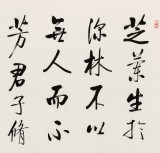 芝蘭生於
深林不以
無人而不
芳君子脩